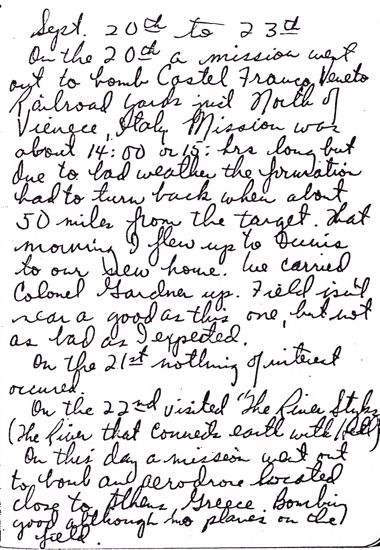 Sept. 20th to 23rd
On the 20th a mission went
out to bomb Castel Franco Veneto
Railroad yards just North of
Vienece, Italy Mission was
about 14:00 or 15: hrs long but
due to bad weather the formation
had to turn back when about
50 miles from the target. That
morning I flew up to
to our New home. We carried
Colonel Gardner up. Field isn't
near a good as this one, but not
as bad as I expected.
On the 21st nothing of interest
occured.
On the 22nd visited "The River Styks
(The River that connects earth with Hell)
On this day a mission went out
to bomb and aerodrone located
close to Athens Greece. Bombing
good although no planes on the
field.